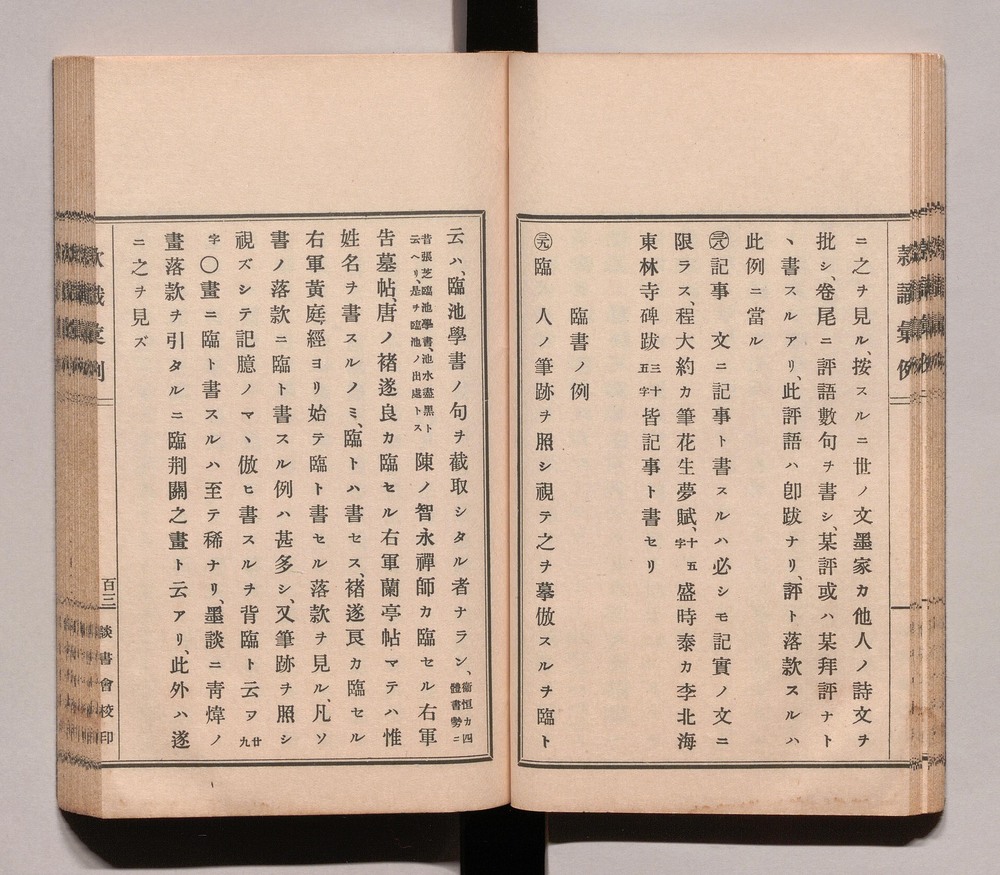 ニ之ヲ見ル、按スルニ世ノ文墨家カ他人ノ詩文ヲ
批シ、卷尾ニ評語數句ヲ書シ、某評或ハ某拜評ナト
ヽ書スルアリ、此評語ハ卽跋ナリ、評ト落款スルハ
此例ニ當ル
記事 文ニ記事ト書スルハ必シモ記實ノ文ニ
限ラス、程大約カ筆花生夢賦、十五字盛時泰カ李北海
東林寺碑跋三十五字皆記事ト書セリ
臨書ノ例
臨 人ノ筆跡ヲ照シ視テ之ヲ摹倣スルヲ臨ト
云ハ、臨池學書ノ句ヲ截取シタル者ナラン、衞恒カ四體書勢ニ
昔張芝臨池學書、池水盡黑ト云ヘリ、是ヲ臨池ノ出處トス 陳ノ智永禪師カ臨セル右軍
吿墓帖、唐ノ褚遂良カ臨セル右軍蘭亭帖マテハ惟
姓名ヲ書スルノミ、臨トハ書セス、褚遂良カ臨セル
右軍黃庭經ヨリ始テ臨ト書セル落款ヲ見ル、凡ソ
書ノ落款ニ臨ト書スル例ハ甚多シ、又筆跡ヲ照シ
視ズシテ記臆ノマヽ倣ヒ書スルヲ背臨ト云フ廿九
字〇畫ニ臨ト書スルハ至テ稀ナリ、墨談ニ靑煒ノ
畫落款ヲ引タルニ臨荆關之畫ト云アリ、此外ハ遂
ニ之ヲ見ズ
百三
談書會校印